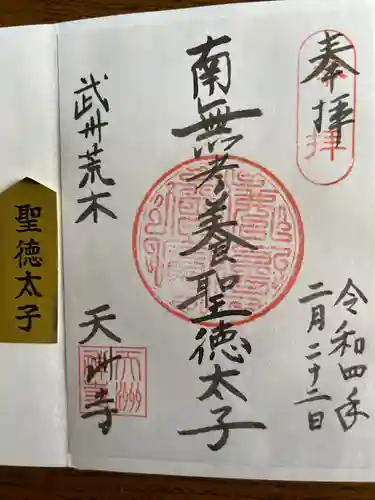 奉拝
令和四年
二月二十二日
南無孝養聖徳太子
武州荒木
天洲寺
聖徳太子